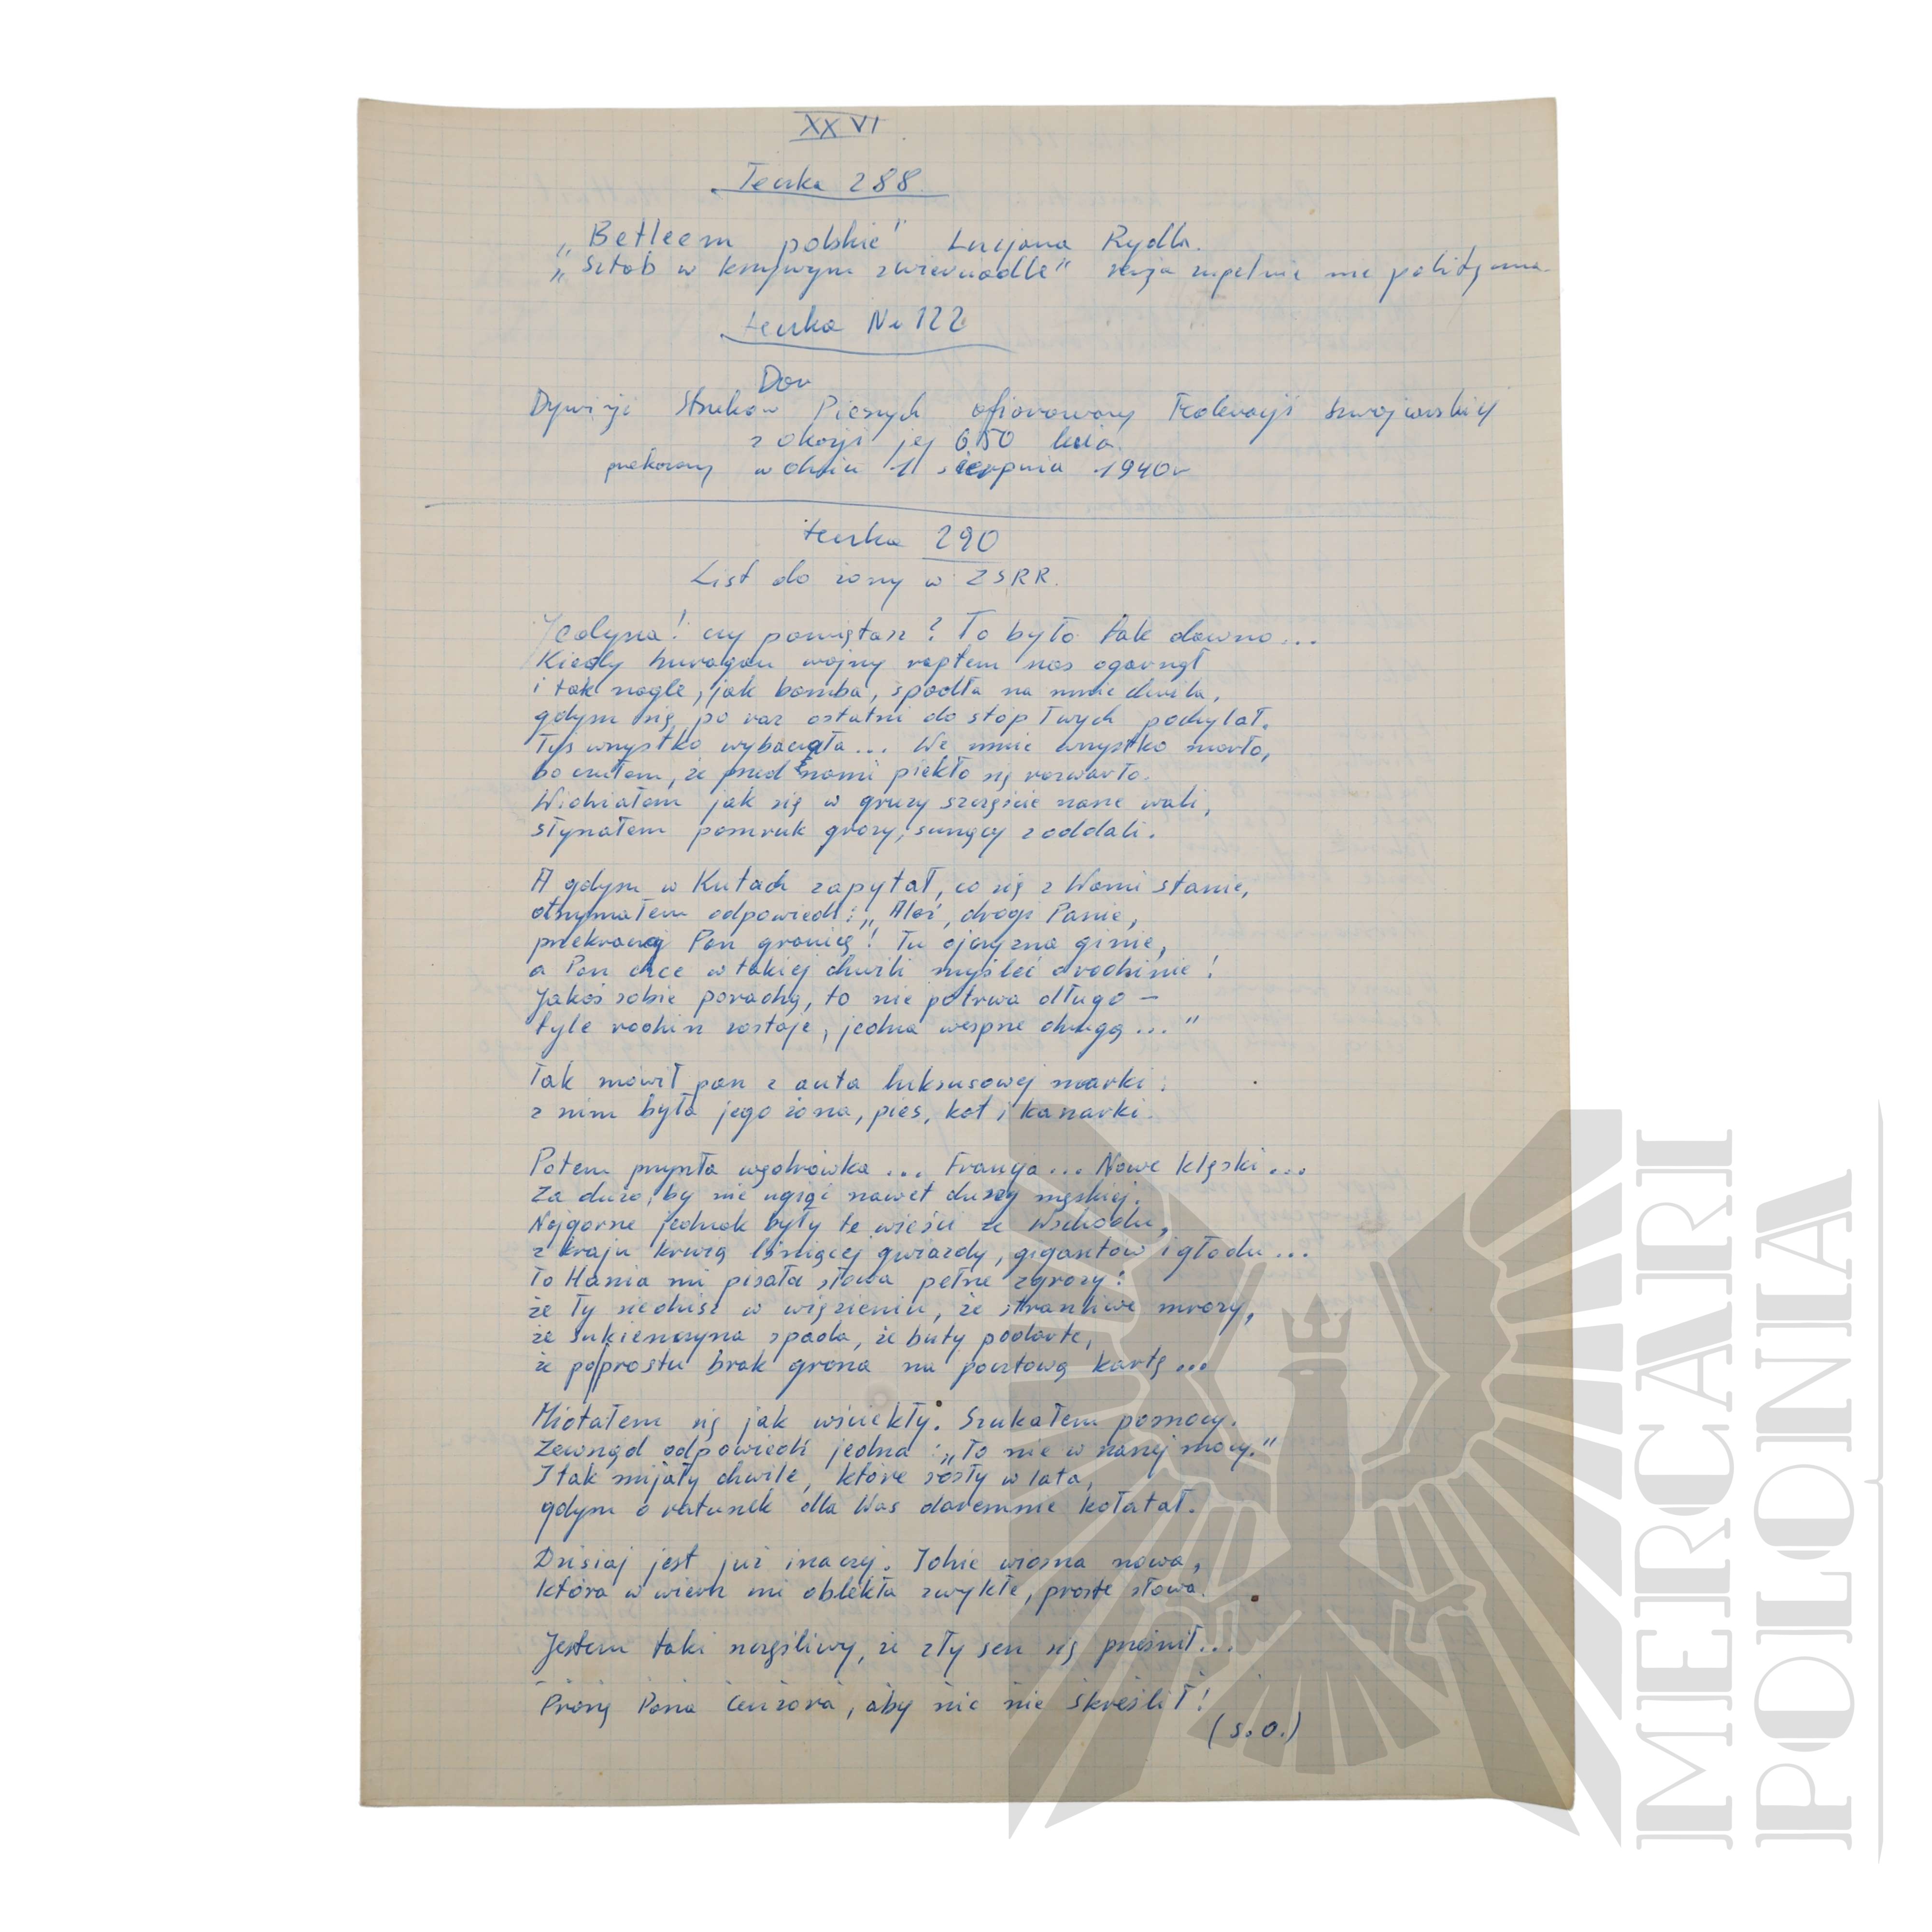 XXVI
Teczka 288.
„Betleem polskie" Lucjana Rydla.
„Sztab w krzywym zwierciadle" rewja zupełnie nie polityczna.
teczka Nr 122
Dar
Dywizji Strzelców Pieszych ofiarowany Federacji szwajcarskiej
z okazji jej 650 lecia
przekazany w dniu 1 sierpnia 1940r
teczka 290
List do żony w ZSRR.
Jedyna! czy pamiętasz? To było tak dawno...
Kiedy huragan wojny raptem nas ogarnął
i tak nagle, jak bomba, spadła na mnie chwila,
gdym się po raz ostatni do stóp Twych pochylał.
Tyś wszystko wybaczyła... We mnie wszystko marło,
bo czułem, że przed nami piekło się rozwarło.
Widziałem jak się w gruzy szczęście nasze wali,
słyszałem pomruk grozy, sunący z oddali.
A gdym w Kutach zapytał, co się z Wami stanie,
otrzymałem odpowiedź: „Ależ, drogi Panie,
przekraczaj Pan granicę! Tu ojczyzna ginie,
a Pan chce w takiej chwili myśleć o rodzinie!
Jakoś sobie poradzą, to nie potrwa długo –
tyle rodzin zostaje, jedna wesprze drugą..."
Tak mówił pan z auta luksusowej marki:
z nim była jego żona, pies, kot i kanarki.
Potem przyszła wędrówka... Francja... Nowe klęski...
Za dużo, by nie ugiąć nawet duszy męskiej.
Najgorsze jednak były te wieści ze Wschodu,
z kraju krwią lśniącej gwiazdy, gigantów i głodu...
To Hania mi pisała słowa pełne zgrozy:
że Ty siedzisz w więzieniu, że straszliwe mrozy,
że sukienczyna spada, że buty podarte,
że poprostu brak grosza na pocztową kartę...
Miotałem się jak wściekły. Szukałem pomocy.
Zewsząd odpowiedź jedna: „To nie w naszej mocy."
I tak mijały chwile, które rosły w lata,
gdym o ratunek dla Was daremnie kołatał.
Dzisiaj jest już inaczej. Idzie wiosna nowa,
która w wiersz mi oblekła zwykłe, proste słowa.
Jestem taki szczęśliwy, że zły sen się prześnił...
Proszę Pana Cenzora, aby nic nie skreślił!
(s.o.)
MERCARI
POLONIA